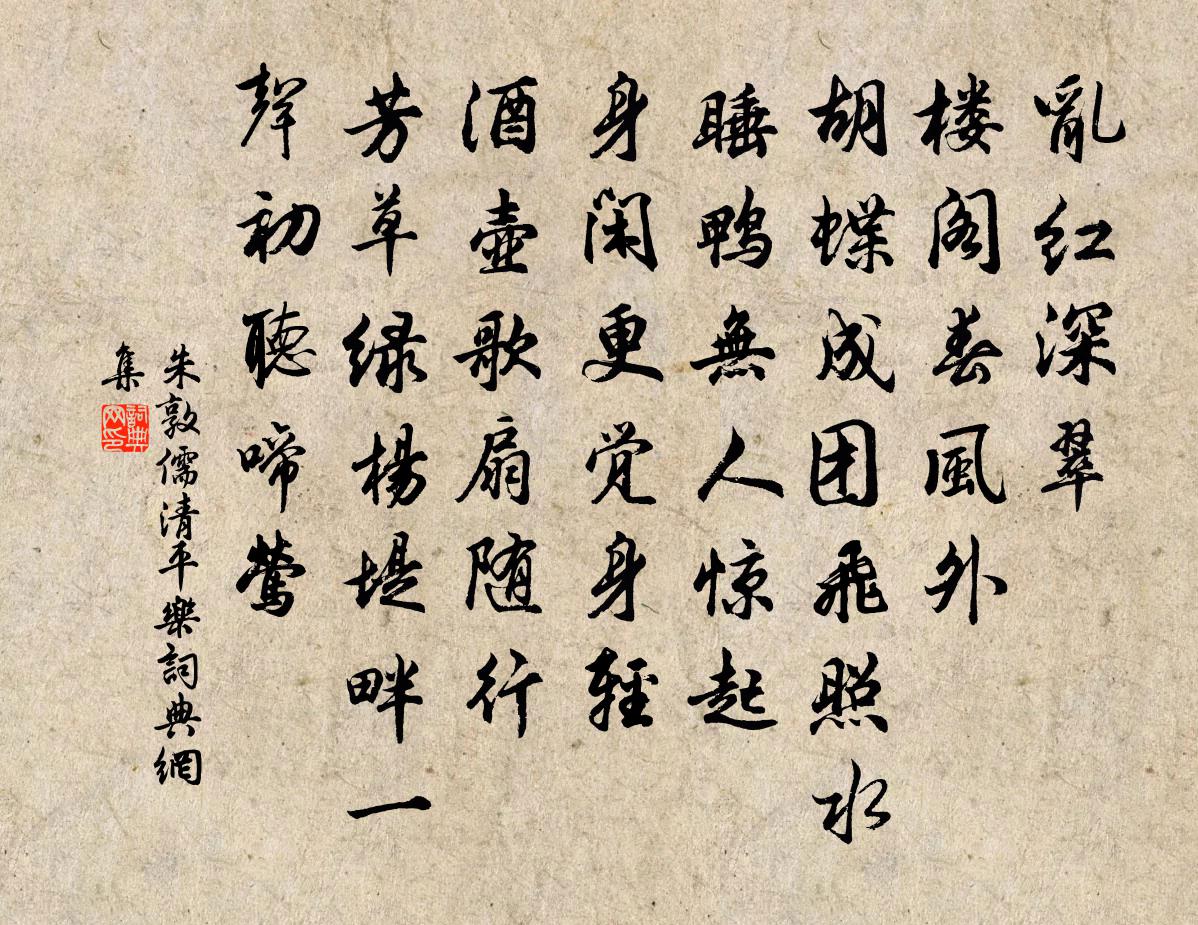 亂红深翠
楼阁春風外
胡蝶成团飛照水
睡鸭無人惊起
身閑更觉身輕
酒壺歌扇随行
芳草绿楊堤畔一
聲初聽啼鶯
朱敦儒清平樂詞典網
集
詞典
网印